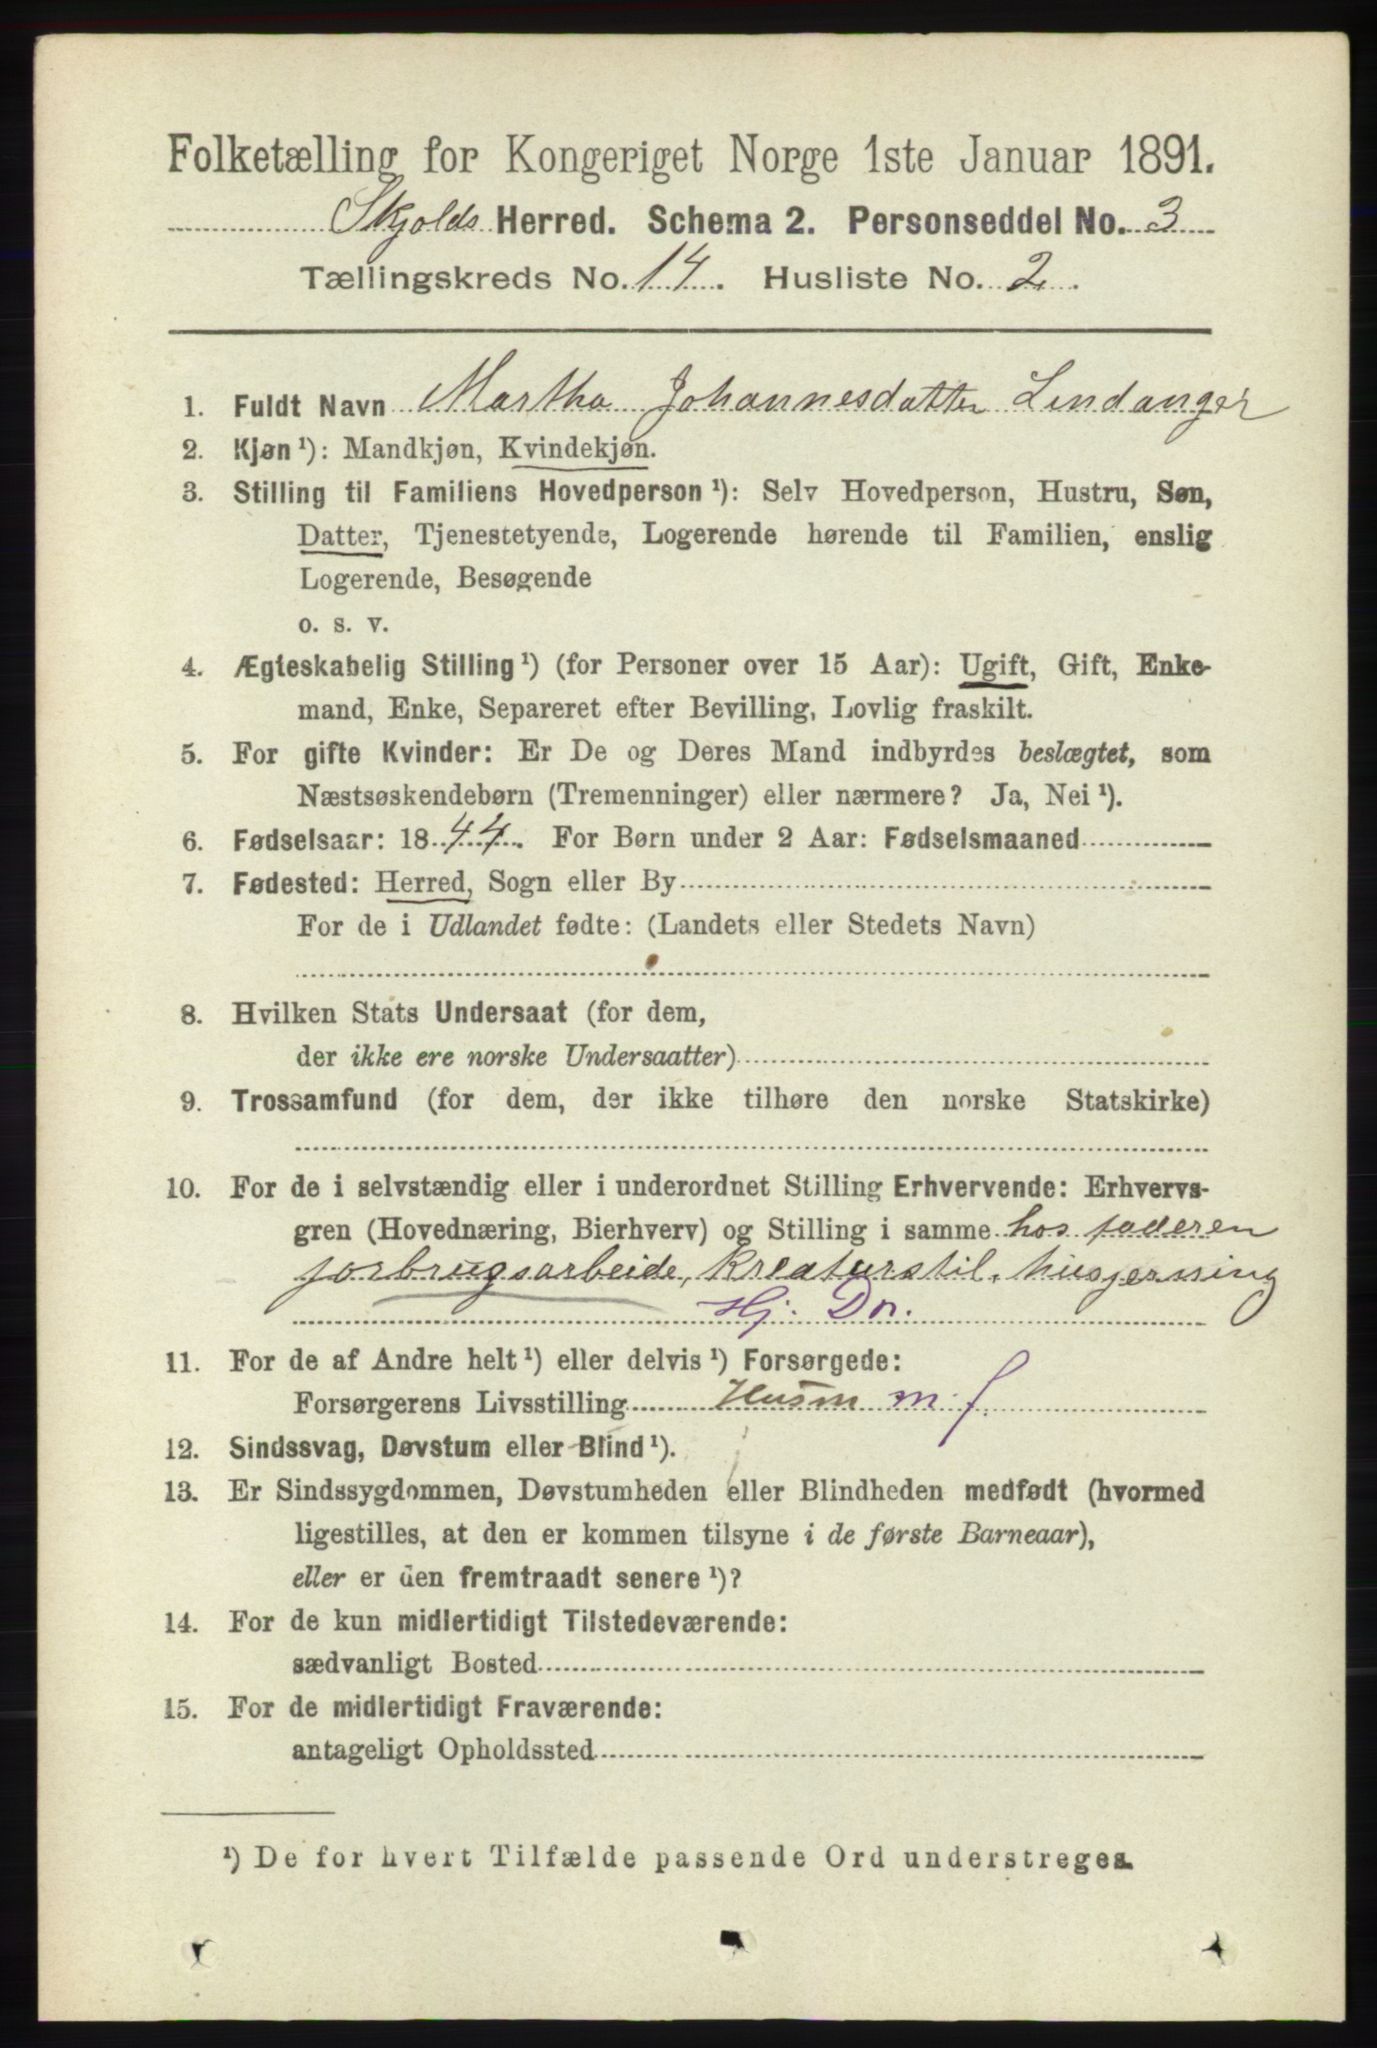 Folketælling for Kongeriget Norge 1ste Januar 1891.
Skjolds Herred. Schema 2. Personseddel No. 3
Tællingskreds No. 14. Husliste No. 2.
1. Fuldt Navn Martha Johannesdatter Lindanger
2. Kjøn ¹): Mandkjøn, Kvindekjøn.
3. Stilling til Familiens Hovedperson ¹): Selv Hovedperson, Hustru, Søn,
Datter, Tjenestetyende, Logerende hørende til Familien, enslig
Logerende, Besøgende
o. s. v.
4. Ægteskabelig Stilling ¹) (for Personer over 15 Aar): Ugift, Gift, Enke-
mand, Enke, Separeret efter Bevilling, Lovlig fraskilt.
5. For gifte Kvinder: Er De og Deres Mand indbyrdes beslægtet, som
Næstsøskendebørn (Tremenninger) eller nærmere? Ja, Nei ¹).
6. Fødselsaar: 1844. For Børn under 2 Aar: Fødselsmaaned
7. Fødested: Herred, Sogn eller By
For de i Udlandet fødte: (Landets eller Stedets Navn)
8. Hvilken Stats Undersaat (for dem,
der ikke ere norske Undersaatter)
9. Trossamfund (for dem, der ikke tilhøre den norske Statskirke)
10. For de i selvstændig eller i underordnet Stilling Erhvervende: Erhvervs-
gren (Hovednæring, Bierhverv) og Stilling i samme hos faderen
jorbrugsarbeide, kreaturstil. husjerning
Hj. Dr.
11. For de af Andre helt ¹) eller delvis ¹) Forsørgede:
Forsørgerens Livsstilling Husm m. j.
12. Sindssvag, Døvstum eller Blind ¹).
13. Er Sindssygdommen, Døvstumheden eller Blindheden medfødt (hvormed
ligestilles, at den er kommen tilsyne i de første Barneaar),
eller er den fremtraadt senere ¹)?
14. For de kun midlertidigt Tilstedeværende:
sædvanligt Bosted
15. For de midlertidigt Fraværende:
antageligt Opholdssted
¹) De for hvert Tilfælde passende Ord understreges.